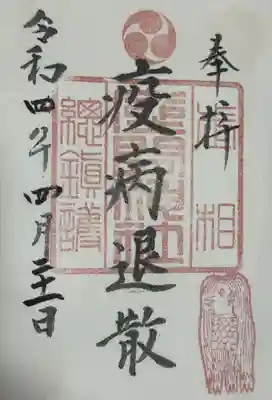 奉拝
疫病退散
令和四年四月二十一日
總鎮護